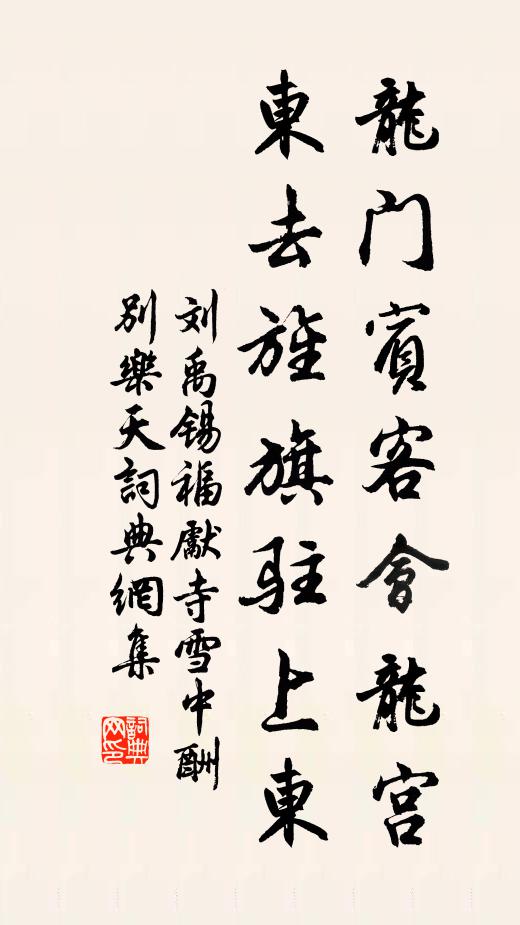 龍門賓客會龍宮
東去旌旗駐上東
刘禹锡福獻寺雪中酬
别樂天詞典網集
詞典
网印